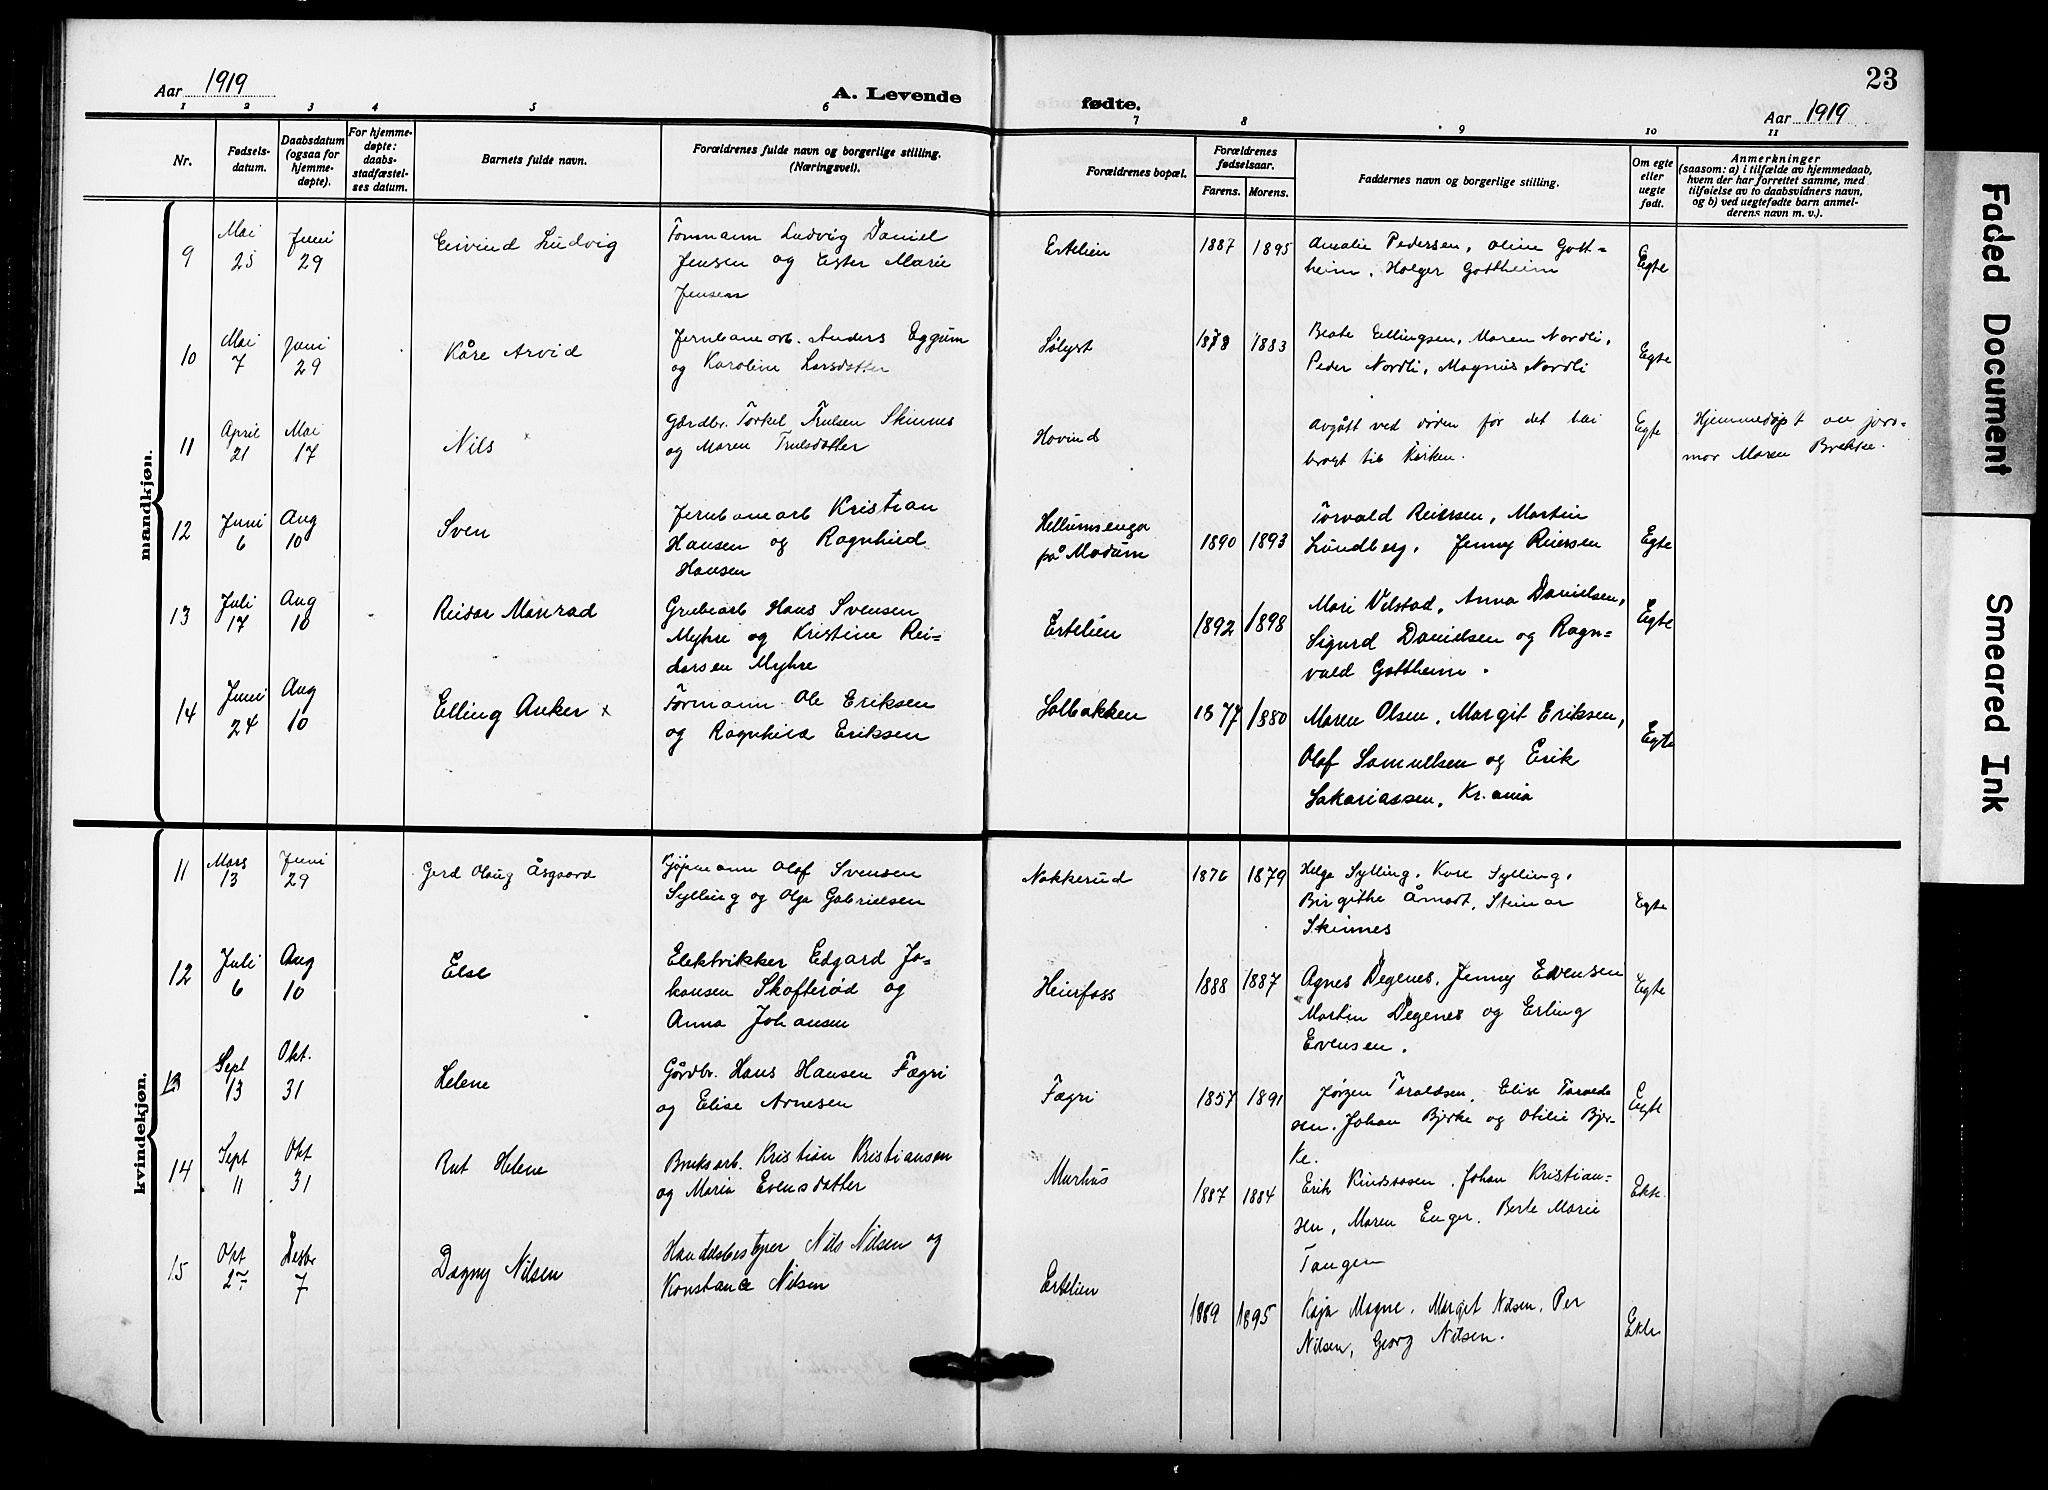 23
Aar 1919
A. Levende
fødte.
Aar 1919
1 2 3 4 5 6 7 8 9 10 11
Nr.
Fødsels-
datum.
Daabsdatum
(ogsaa for
hjemme-
døpte).
For hjemme-
døpte:
daabs-
stadfæstel-
ses datum.
Barnets fulde navn.
Forældrenes fulde navn og borgerlige stilling.
(Næringsvei).
Forældrenes bopæl.
Forældrenes
fødselsaar.
Farens. Morens.
Faddernes navn og borgerlige stilling.
Om egte
eller
uegte
født.
Anmerkninger
(saasom: a) i tilfælde av hjemmedaab,
hvem der har forrettet samme, med
tilføielse av to daabsvidners navn,
og b) ved uegtefødte barn anmel-
derens navn m. v.).
mandkjøn.
9
Mai
25
Juni
29
Eivind Ludvig
Formann Ludvig Daniel
Jensen og Ester Marie
Jensen
Ertelien
1887 1895
Amalie Pedersen, Oline Gott=
heim, Holger Gottheim
Egte
10
Mai
7
Juni
29
Kåre Arvid
Jernbanearb. Anders Eggum
og Karoline Larsdatter
Sølyst
1878 1883
Beate Ellingsen, Maren Nordli,
Peder Nordli, Magnus Nordli
Egte
11
April
21
Mai
17
Nils x
Gårdbr. Torkel Trulsen Skinnes
og Maren Trulsdatter
Hovind
Avgått ved døden før det blei
bragt til Kirken.
Egte
Hjemmedøpt av jor=
mor Maren Brekke.
12
Juni
6
Aug
10
Sven
Jernbanearb Kristian
Hansen og Ragnhild
Hansen
Hellumsenga
på Modum
1890 1893
Torvald Reiersen, Martin
Lundberg, Jenny Reiersen
Egte
13
Juli
17
Aug
10
Reidar Manrad
Grubearb Hans Svensen
Myhre og Kristine Rei=
darsen Myhre
Ertelien
1892 1898
Mari Velstad, Anna Danielsen,
Sigurd Danielsen og Ragn=
vald Gottheim.
Egte
14
Juni
24
Aug
10
Elling Anker x
Formann Ole Eriksen
og Ragnhild Eriksen
Solbakken
1877 1880
Maren Olsen, Margit Eriksen,
Olaf Samuelsen og Erik
Sakariassen, Kr.ania
Egte
kvindekjøn.
11
Mars
13
Juni
29
Gerd Olaug Åsgaard
Kjøpmann Olaf Svensen
Sylling og Olga Gabrielsen
Nakkerud
1876 1879
Helga Sylling, Kåre Sylling,
Birgithe Åmodt, Steinar
Skinnes
Egte
12
Juli
6
Aug
10
Else
Elektrikker Edgard Jo-
hansen Skofterød og
Anna Johansen
Heierfoss
1888 1887
Agnes Degenes, Jenny Evensen
Martin Degenes og Erling
Evensen.
Egte
13
Sept
13
Okt.
31
Helene
Gårdbr. Hans Hansen Fægri
og Elise Arnesen
Fægri
1857 1891
Jørgen Taraldsen, Elise Taralds
sen, Johan Bjerke og Otilie Bjer-
ke.
Egte
14
Sept
11
Okt
31
Rut Helene
Bruksarb. Kristian Kristiansen
og Maria Evensdatter
Murhus
1887 1884
Erik Kindsaasen, Johan Kristian=
sen, Maren Enger, Berte Marie
Tangen
Ekte.
15
Okt
27
Desbr
7
Dagny Nilsen
Handelsbestyrer Nils Nilsen og
Konstance Nilsen
Ertelien
1889 1895
Kaja Magne, Margit Nilsen, Per
Nilsen, Georg Nilsen.
Ekte
Faded Document
Smeared Ink